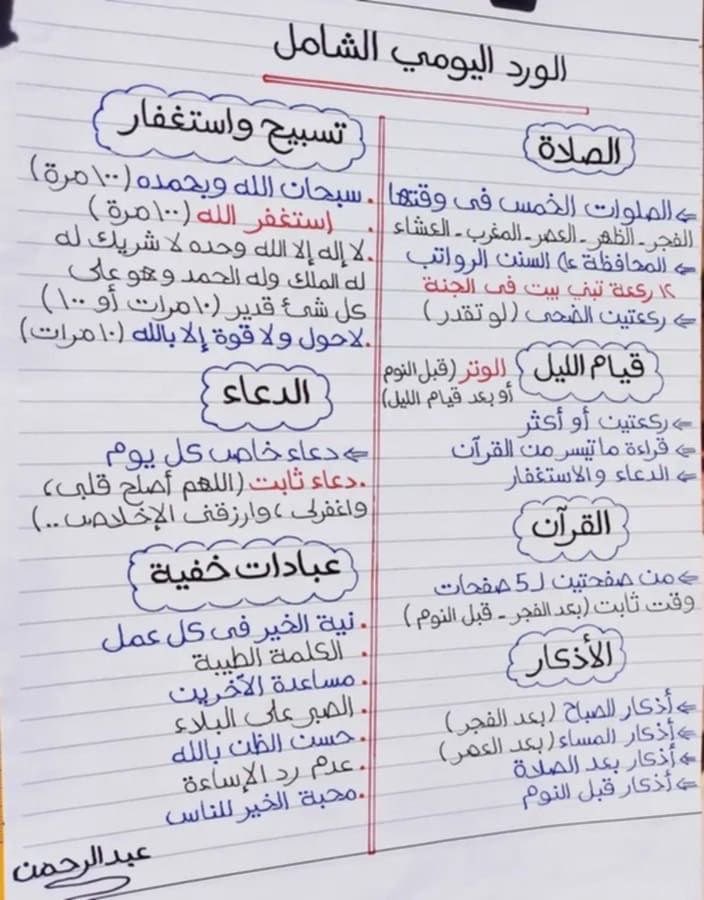 الورد اليومي الشامل
الصلاة
⇐ الصلوات الخمس في وقتها
الفجر - الظهر - العصر - المغرب - العشاء
⇐ المحافظة ع السنن الرواتب
١٢ ركعة تبني بيت في الجنة
⇐ ركعتين الضحى (لو تقدر)
قيام الليل
الوتر (قبل النوم
أو بعد قيام الليل)
⇐ ركعتين أو أكثر
⇐ قراءة ما تيسر من القرآن
⇐ الدعاء والاستغفار
القرآن
⇐ من صفحتين لـ 5 صفحات
وقت ثابت (بعد الفجر - قبل النوم)
الأذكار
⇐ أذكار الصباح (بعد الفجر)
⇐ أذكار المساء (بعد العصر)
⇐ أذكار بعد الصلاة
⇐ أذكار قبل النوم
تسبيح واستغفار
. سبحان الله وبحمده (١٠٠ مرة)
. إستغفر الله (١٠٠ مرة)
. لا إله إلا الله وحده لا شريك له
له الملك وله الحمد وهو على
كل شئ قدير (١٠ مرات أو ١٠٠)
. لا حول ولا قوة إلا بالله (١٠ مرات)
الدعاء
⇐ دعاء خاص كل يوم
. دعاء ثابت (اللهم أصلح قلبي،
واغفرلي، وارزقني الإخلاص ..)
عبادات خفية
. نية الخير في كل عمل
. الكلمة الطيبة
. مساعدة الآخرين
. الصبر على البلاء
. حسن الظن بالله
. عدم رد الإساءة
. محبة الخير للناس
عبدالرحمن